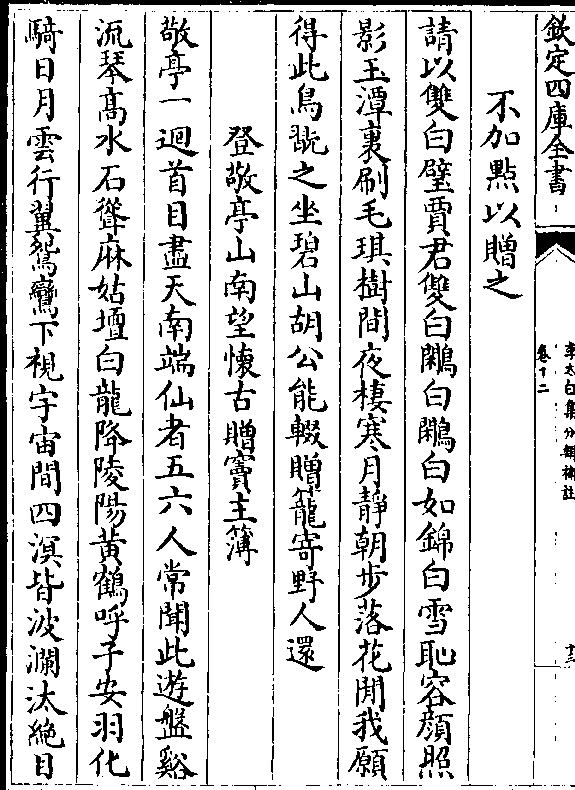 欽定四庫全書
李太白集分類補註
卷十二
十三
不加點以贈之
請以雙白璧買君雙白鷴白鷴白如錦白雪恥容顔照
影玉潭裏刷毛琪樹間夜棲寒月靜朝步落花閒我願
得此鳥翫之坐碧山胡公能輟贈籠寄野人還
登敬亭山南望懷古贈竇主簿
敬亭一迴首目盡天南端仙者五六人常聞此遊盤谿
流琴髙水石聳麻姑壇白龍降陵陽黄鶴呼子安羽化
騎日月雲行翼鴛鸞下視宇宙間四溟皆波瀾汰絶目